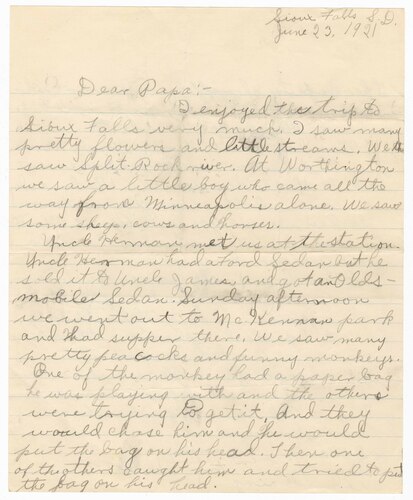 Sioux Falls S.D.
June 23, 1921
Dear Papa:-
I enjoyed the trip to
Sioux Falls very much. I saw many
pretty flowers and little streams. We
saw Split Rock river. At Worthington
we saw a little boy who came all the
way from Minneapolis alone. We saw
some sheep, cows and horses.
Uncle Herman met us at the station.
Uncle Herman had a Ford Sedan but he
sold it to Uncle James and got an Olds-
mobile Sedan. Sunday afternoon
we went out to Mc.Kennan park
and had supper there. We saw many
pretty peacocks and funny monkeys.
One of the monkey had a paper bag
he was playing with and the others
were trying to get it, And they
would chase him and he would
put the bag on his head. Then one
of the others caught him and tried to put
the bag on his head.